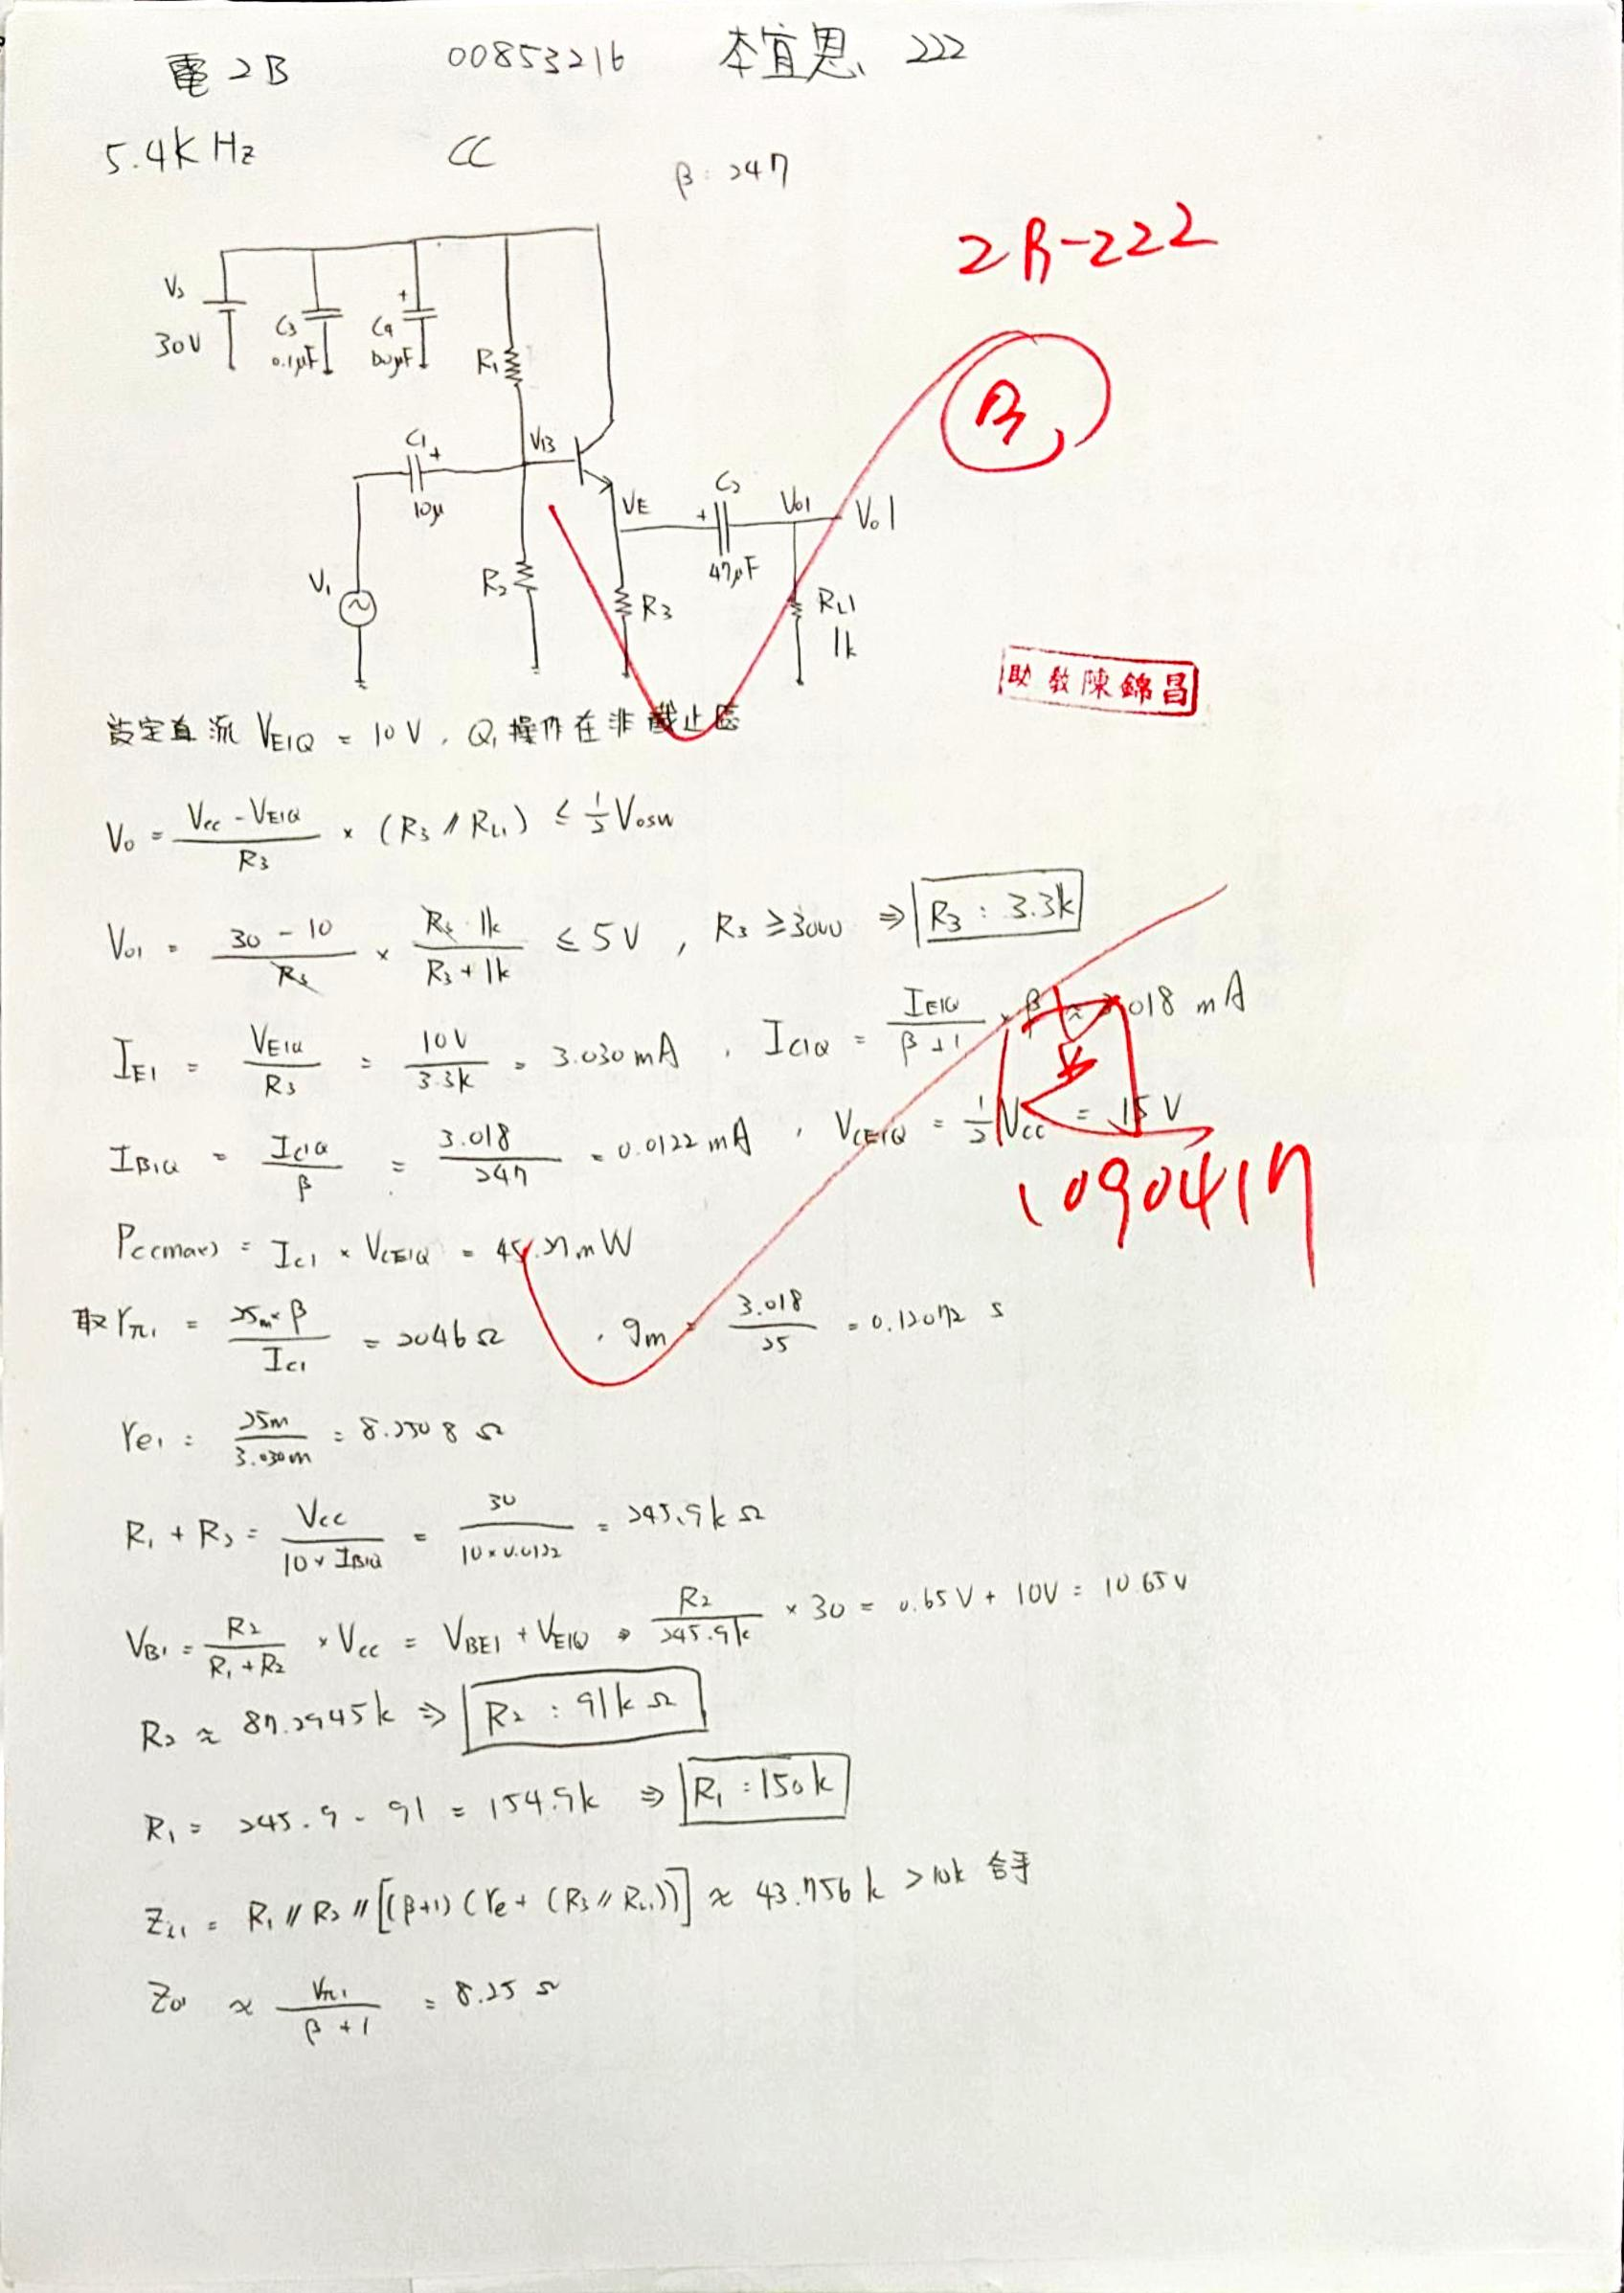 電2B 00853216 本宜恩 222
5.4K Hz CC β: 247
2B-222
B
V2 30V C3 0.1μF C4 100μF R1
C1 10μ VB VE C2 47μF Vo1 Vo1
V1 R2 R3 RL1 1k
助教陳錦昌
設定直流 VE1Q = 10V, Q1操作在非截止區
Vo = (Vcc - VE1Q)/R3 × (R3 // RL1) ≤ 1/2 Vosw
Vo1 = (30 - 10)/R3 × (R3 · 1k)/(R3 + 1k) ≤ 5V , R3 ≥ 3000 ⇒ R3 : 3.3k
IE1 = VE1Q/R3 = 10V/3.3k = 3.030mA , IC1Q = IE1Q/(β+1) × β ≈ 3.018 mA
IB1Q = IC1Q/β = 3.018/247 = 0.0122 mA , VCE1Q = 1/2 Vcc = 15V
1090417
Pc(max) = Ic1 × VCE1Q = 45.27mW
取 rπ1 = 25m×β/Ic1 = 2046Ω , gm = 3.018/25 = 0.12072 s
re1 = 25m/3.030m = 8.2508 Ω
R1 + R2 = Vcc/(10 × IB1Q) = 30/(10×0.0122) = 245.9k Ω
VB1 = R2/(R1+R2) × Vcc = VBE1 + VE1Q ⇒ R2/245.9k × 30 = 0.65V + 10V = 10.65V
R2 ≈ 87.2945k ⇒ R2 : 91k Ω
R1 = 245.9 - 91 = 154.9k ⇒ R1 : 150k
Zi1 = R1 // R2 // [(β+1)(re + (R3 // RL1))] ≈ 43.756 k > 10k 合乎
Zo1 ≈ rπ1/(β+1) = 8.25 Ω